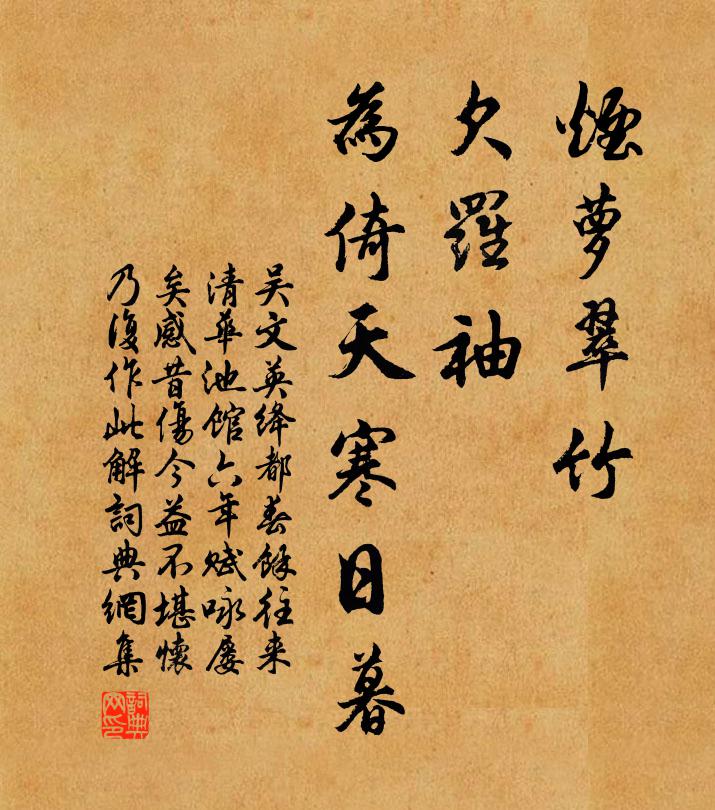 煙蘿翠竹
欠羅袖
為倚天寒日暮
吴文英絳都春餘往来
清華池館六年賦咏屡
矣感昔傷今益不堪懷
乃復作此解詞典網集
詞典
网印